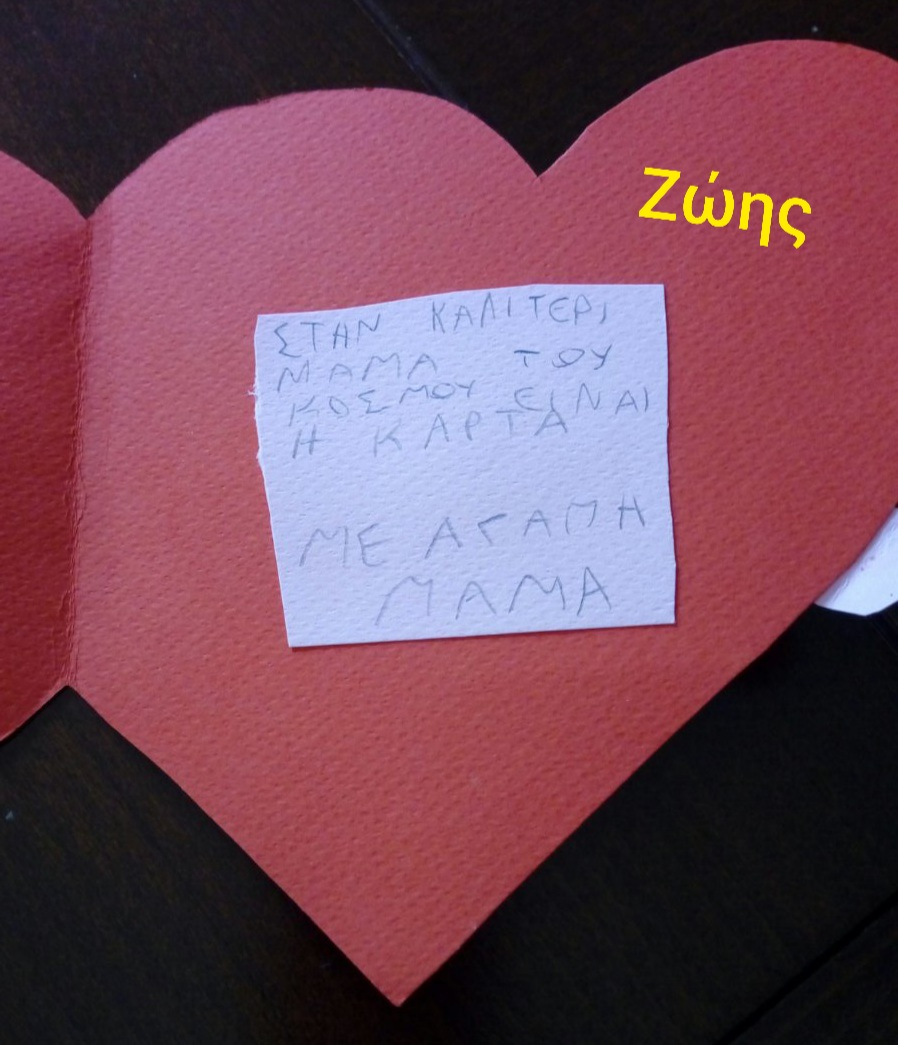 Ζώης
ΣΤΗΝ ΚΑΛΙΤΕΡΙ
ΜΑΜΑ ΤΟΥ
ΚΟΣΜΟΥ ΕΙΝΑΙ
Η ΚΑΡΤΑ
ΜΕ ΑΓΑΠΗ
ΜΑΜΑ